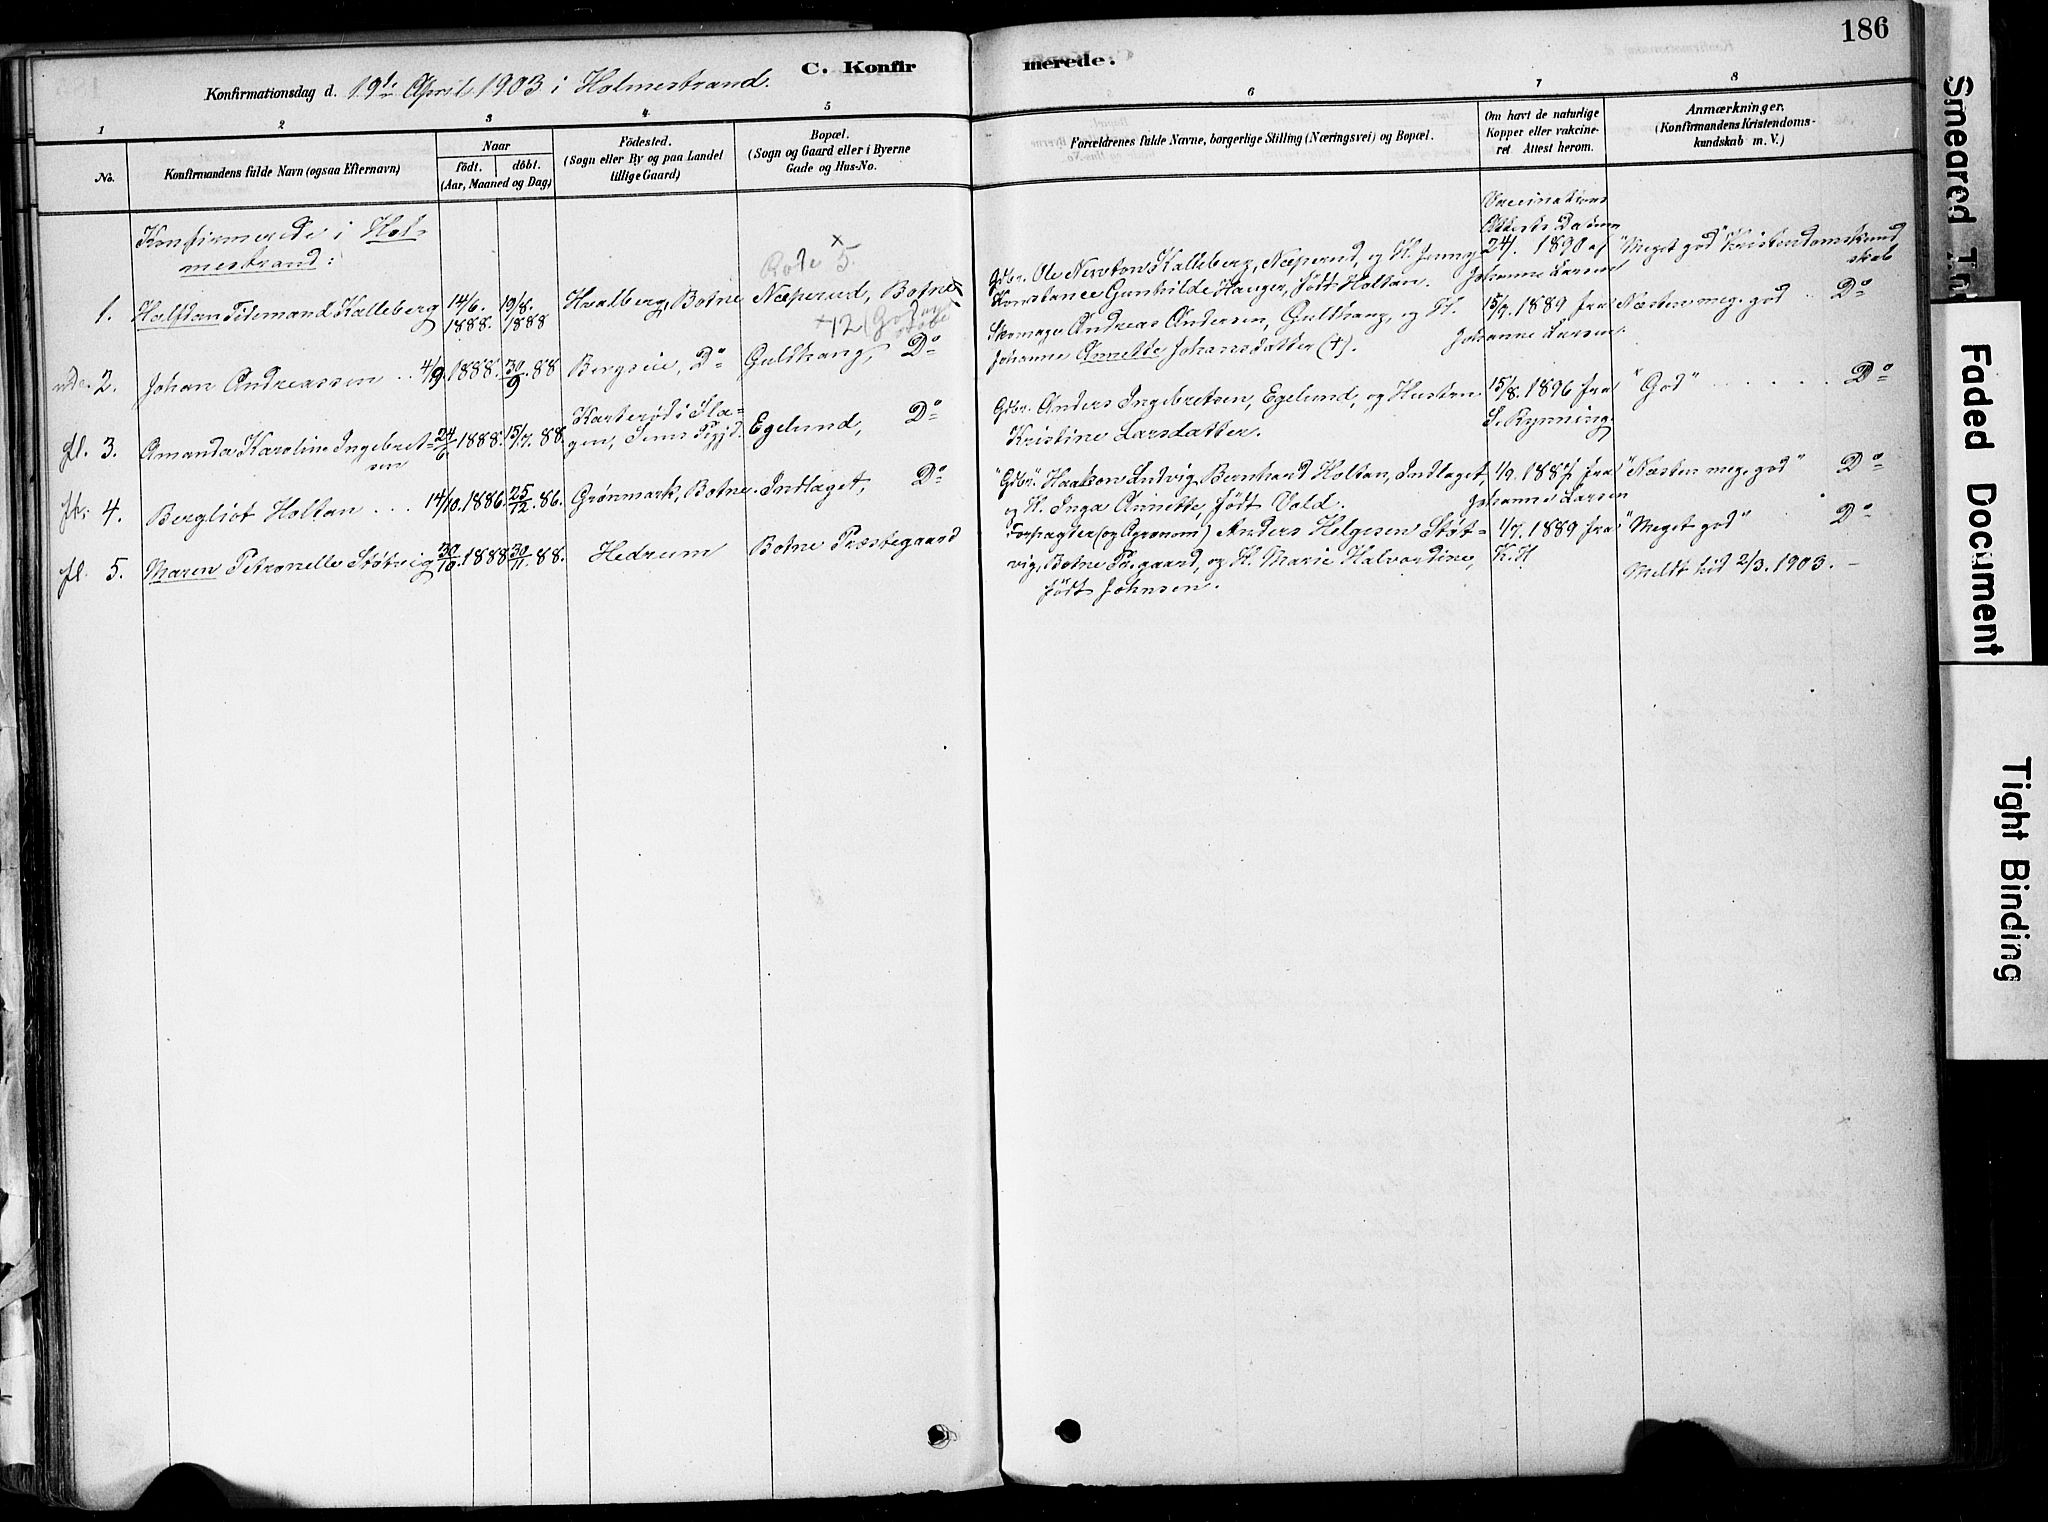 186
C. Konfirmerede.
Konfirmationsdag d. 19de April 1903 i Holmestrand.
1 2 3 4 5 6 7 8
No.
Konfirmandens fulde Navn (ogsaa Efternavn)
Naar
födt. döbt.
(Aar, Maaned og Dag)
Födested.
(Sogn eller By og paa Landet
tillige Gaard)
Bopæl.
(Sogn og Gaard eller i Byerne
Gade og Hus-No.
Forældrenes fulde Navne, borgerlige Stilling (Næringsvei) og Bopæl.
Om havt de naturlige
Kopper eller vakcine-
ret Attest herom.
Anmærkninger.
(Konfirmandens Kristendoms-
kundskab m. V.)
Konfirmerede i Hol-
mestrand:
Rode 5.
Vaccinations
Attests Datum
1. Halfdan Tidemand Kalleberg
14/6. 1888. 19/8. 1888
Hvalberg, Botne
Næperud, Botne
Gdbr. Ole Newton Kalleberg, Næperud, og H. Jenny
Konstance Gunhilde Hauger, født Holtan.
24/. 1890 af
Johanne Larsen
"Meget god" Kristendomskund
skab
+12
2. Johan Andreassen
4/9. 1888. 30/9 88
Bergseie, Do
Guldhaug, Do
Skomager Andreas Andersen, Guldhaug, og H.
Johanne Annette Johansdatter (+).
15/9. 1889 fra
Johanne Larsen.
Næsten meg. god Do
fl. 3. Amanda Karoline Ingebret-
sen
24/6 1888. 15/7. 88.
Karterød i Sla-
gen, Sems Pgjd.
Egelund, Do
Gdbr. Anders Ingebretsen, Egelund, og Hustru
Kristine Larsdatter.
15/8. 1896 fra
S. Rynning.
"God" Do
4. Bergliot Holtan
14/10. 1886. 25/12. 86.
Grönmark, Botne.
Indlaget, Do
"Gdbr." Haakon Ludvig Bernhard Holtan, Indlaget,
og H. Inga Annette, født Vold.
1/9. 1887 fra
Johanne Larsen
"Næsten meg. god" Do
fl. 5. Maren Petronelle Støtvig
30/10. 1888 30/11. 88.
Hedrum
Botne Præstegaard
Forpagter (og Agronom) Anders Helgesen Støt-
vig, Botne Pr.gaard, og H. Marie Halvardine,
født Johnsen.
1/7. 1889 fra
K. H
"Meget god" Do
Meldt hid 2/3. 1903. –
Smeared
Faded Document
Tight Binding